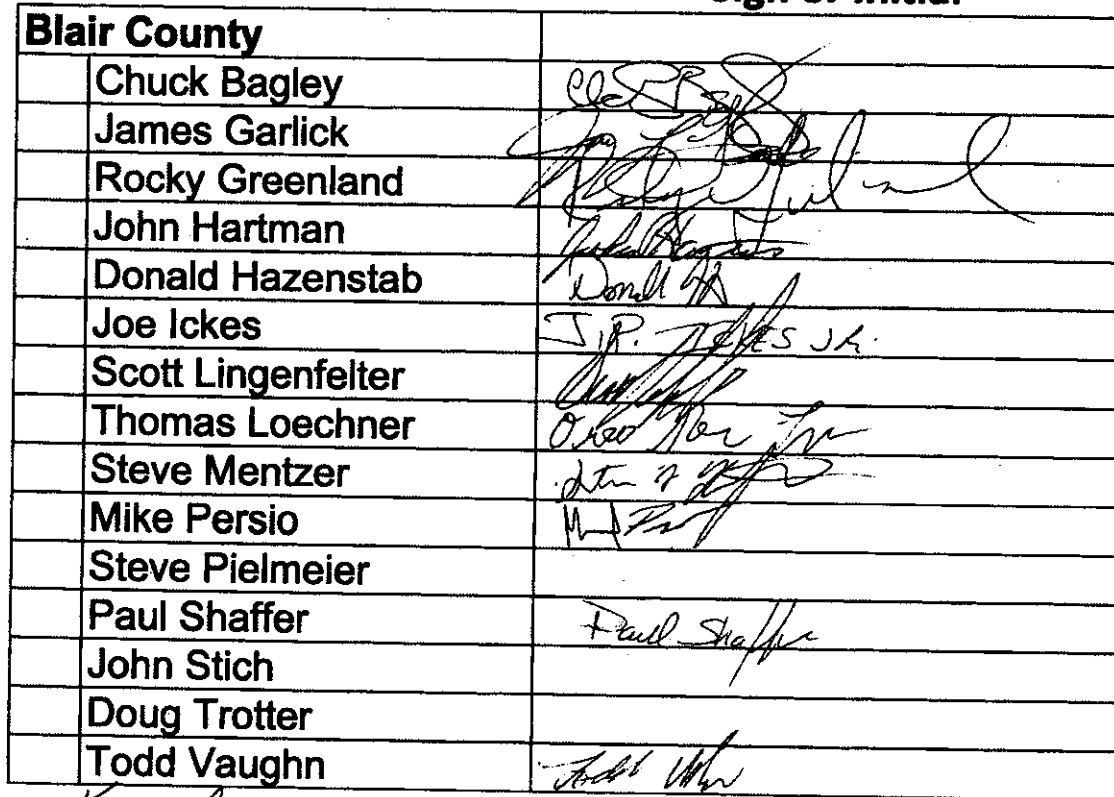 Sign or Initial
Blair County
Chuck Bagley
James Garlick
Rocky Greenland
John Hartman
Donald Hazenstab Donald
Joe Ickes J.R. ICKES JR.
Scott Lingenfelter
Thomas Loechner
Steve Mentzer
Mike Persio
Steve Pielmeier
Paul Shaffer Paul Shaffer
John Stich
Doug Trotter
Todd Vaughn Todd